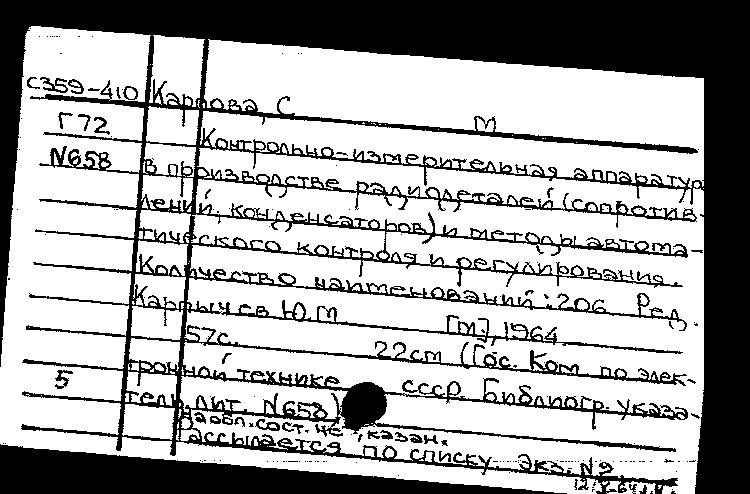 С359-410 Карпова, С М
Г72 Контрольно-измерительная аппаратур
N658 в производстве радиодеталей (сопротив-
лений, конденсаторов) и методы автома-
тического контроля и регулирования.
Количество наименований: 206 Ред.
Карпычев Ю.М [М], 1964
57с. 22cm (Гос. Ком по элек-
5 тронной технике СССР. Библиогр. указа-
тель лит. N658)
забл. сост. не указан.
Рассылается по списку. Экз. N2